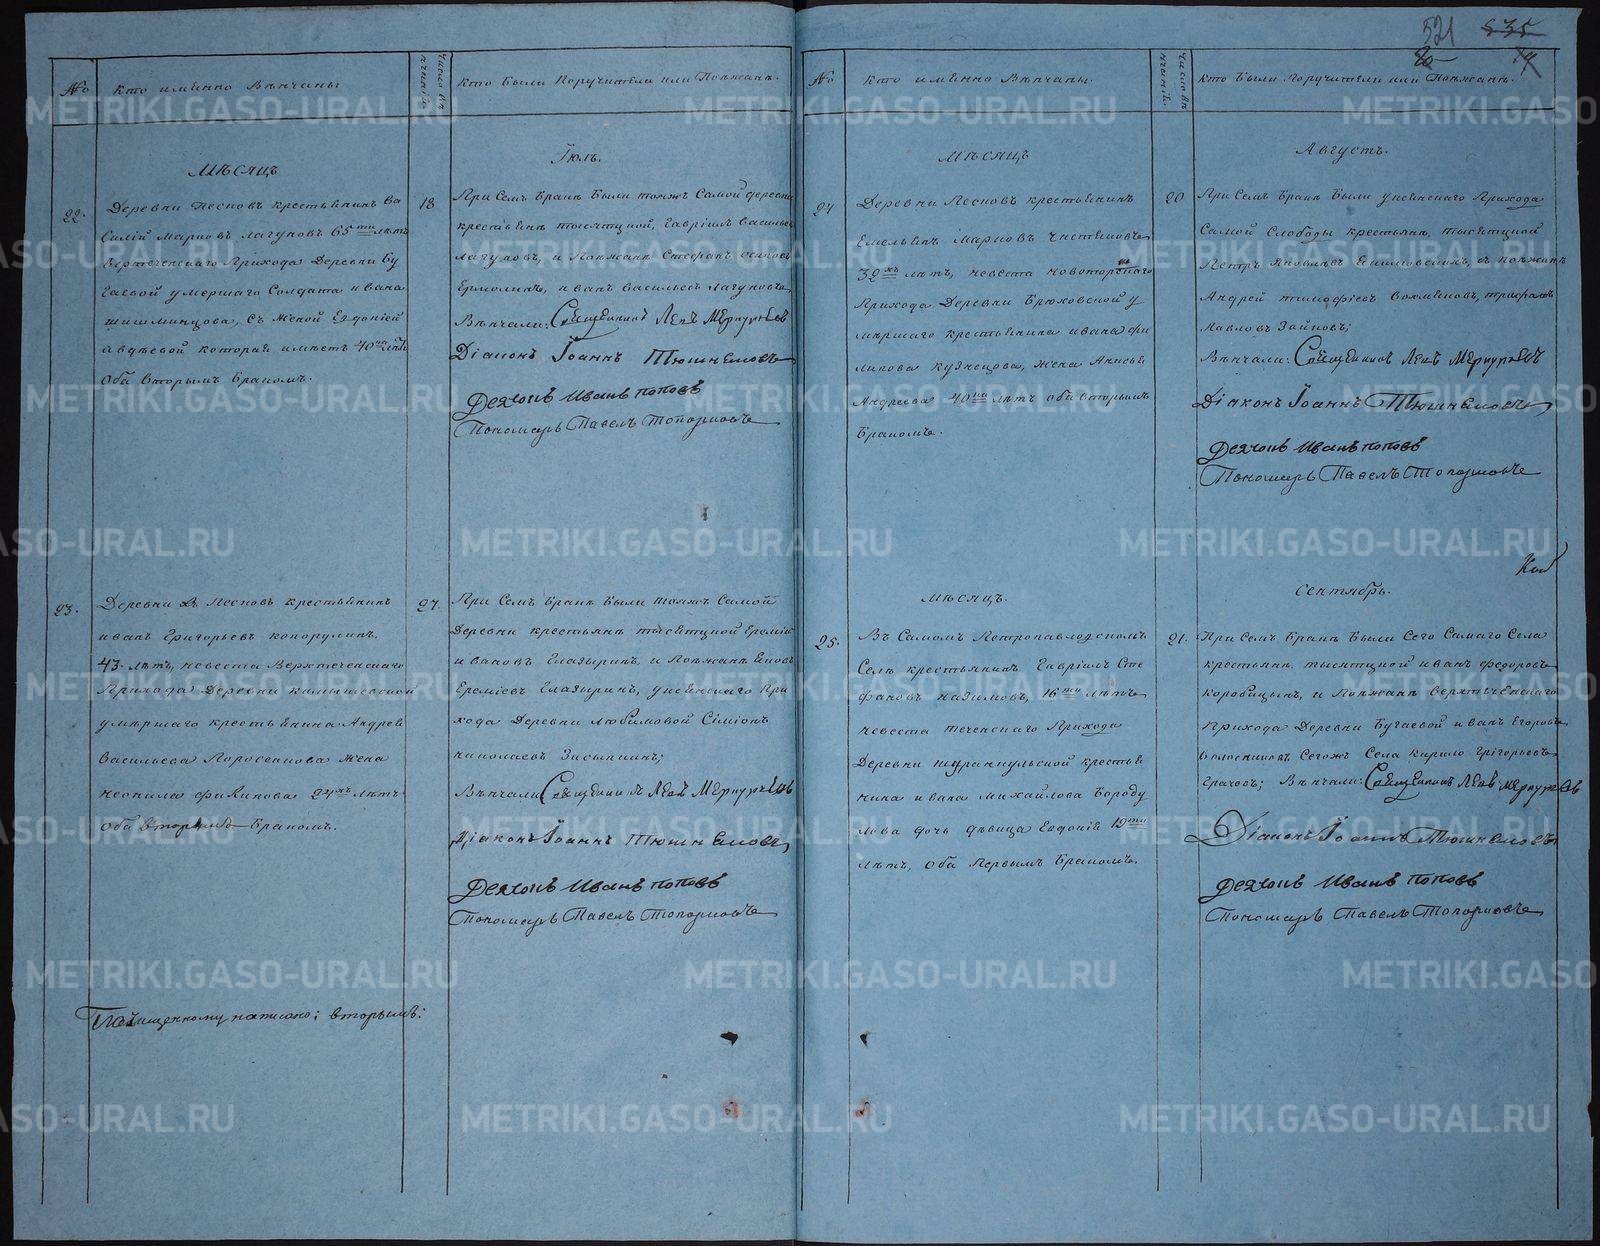 521 535
№
Кто именно Вѣнчаны
Число вѣнчаній.
Кто были Поручители или Поѣжанѣ.
Мѣсяцъ
Іюль.
22.
Деревни Песковъ крестьянинъ Ва
силій Марковъ Лагуновъ 65ти лѣтъ
Верхтеченскаго Прихода Деревни Бу
гаевой умершаго Солдата Ивана
Шишминцова, съ женой Евдокіей
Авдѣевой которая имѣетъ 40ка лѣтъ
оба вторымъ бракомъ.
18
При семъ бракѣ были тояжъ самой деревни
крестьянѣ тысятцкой, Гавріилъ Васильевъ
Лагуновъ, и Поѣжанѣ Стефанъ Осиповъ
Ермолинъ, Иванъ Васильевъ Лагуновъ,
Вѣнчали: Священникъ Левъ Меркурьевъ
Діаконъ Іоаннъ Тюшняковъ
Дьячокъ Иванъ Поповъ
Пономарь Павелъ Топорковъ
23.
Деревни Песковъ крестьянинъ
Иванъ Григорьевъ Копорулинъ.
43. лѣтъ, невеста Верхтеченскаго
Прихода Деревни Камышевской
умершаго крестьянина Андрея
Васильева Поросенкова жена
Неонила Филипова 24хъ лѣтъ.
оба вторымъ бракомъ.
27.
При семъ бракѣ были тояжъ самой
Деревни крестьянѣ тысятцкой Еремій
Ивановъ Глазыринъ, и Поѣжанѣ
Еремѣевъ Глазыринъ, Усненскаго При
хода Деревни Любимовой Сіміонъ
Николаевъ Засыпкинъ;
Вѣнчали Священникъ Левъ Меркурьевъ
Діаконъ Іоаннъ Тюшняковъ
Дьячокъ Иванъ Поповъ
Пономарь Павелъ Топорковъ
По чищенному написано: вторымъ:
№
Кто именно Вѣнчаны.
Число вѣнчаній.
Кто были Поручители или Поѣжанѣ.
Мѣсяцъ
Августъ.
24
Деревни Песковъ крестьянинъ
Емельянъ Марковъ Чистяковъ
32хъ лѣтъ, невеста Новоторскаго
Прихода Деревни Брюховской у
мѣршаго крестьянина Ивана Фи
липова Кузнецова, жена Анисья
Андреева 40ка лѣтъ оба вторымъ
бракомъ.
20
При семъ бракѣ были Усненскаго Прихода
самой Слободы крестьянѣ, тысятцкой
Петръ Яковлевъ, съ поѣжанѣ
Андрей Тимофѣевъ
Павловъ Зайковъ;
Вѣнчали: Священникъ Левъ Меркурьевъ
Діаконъ Іоаннъ Тюшняковъ
Дьячокъ Иванъ Поповъ
Пономарь Павелъ Топорковъ
Мѣсяцъ.
Сентябрь.
25.
Въ самомъ Петропавловскомъ
Селѣ крестьянинъ Гавріилъ Сте
фановъ Назимовъ, 16ти лѣтъ
невеста Теченскаго Прихода
Деревни Шуранкульской крестья
нина Ивана Михайлова Бороду
лова дочь дѣвица Евдокія 19ти
лѣтъ, оба первымъ бракомъ.
21.
При семъ бракѣ были сего самаго села
крестьянѣ, тысятцкой Иванъ Федоровъ
Коробицынъ, и Поѣжанѣ Верхтеченскаго
Прихода Деревни Бугаевой Иванъ Егоровъ
Колосниковъ сегожъ села Кирило Григорьевъ
Грачовъ; Вѣнчали: Священникъ Левъ Меркурьевъ
Діаконъ Іоаннъ Тюшняковъ
Дьячокъ Иванъ Поповъ
Пономарь Павелъ Топорковъ
METRIKI.GASO-URAL.RU